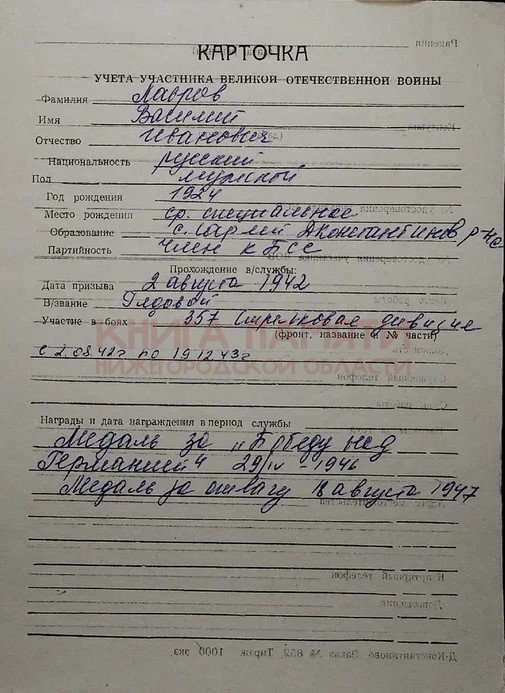 КАРТОЧКА
УЧЕТА УЧАСТНИКА ВЕЛИКОЙ ОТЕЧЕСТВЕННОЙ ВОЙНЫ
Фамилия Лавров
Имя Василий
Отчество Иванович
Национальность русский
Пол мужской
Год рождения 1924
Место рождения ср. специальное
Образование с. Сарлей Дконстантинов р-на
Партийность член КПСС
Прохождение в/службы:
Дата призыва 2 августа 1942
В/звание Рядовой
Участие в боях 357 стрелковая дивизия
(фронт, название и № части)
с 2.08.42г по 19.12.43г
КНИГА ПАМЯТИ
НИЖЕГОРОДСКОЙ ОБЛАСТИ
Награды и дата награждения в период службы
Медаль за „Победу над
Германией" 29/IV-1946
Медаль за отвагу 18 августа 1947
Д-Константиново Заказ № 852 Тираж 1000 экз